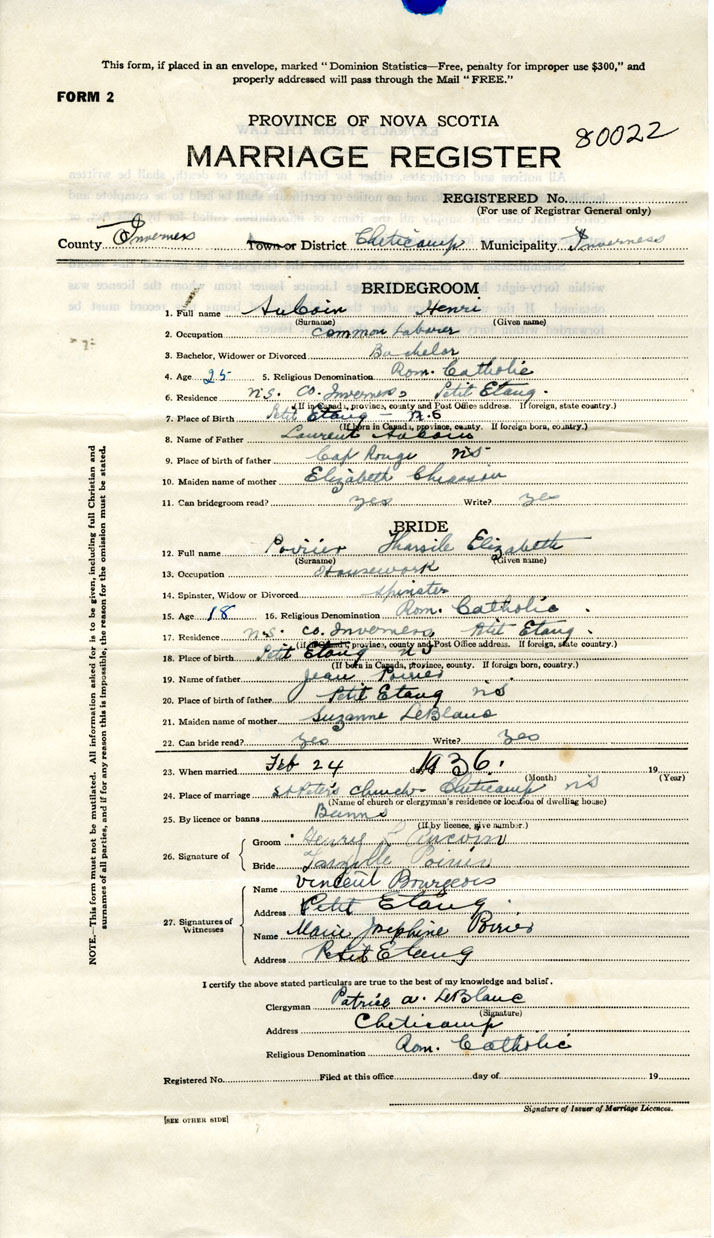 This form, if placed in an envelope, marked "Dominion Statistics—Free, penalty for improper use $300," and
properly addressed will pass through the Mail "FREE."
FORM 2
PROVINCE OF NOVA SCOTIA
80022
MARRIAGE REGISTER
REGISTERED No.
(For use of Registrar General only)
County Inverness Town or District Cheticamp Municipality Inverness
BRIDEGROOM
1. Full name AuCoin Henri
(Surname) (Given name)
2. Occupation Common Laborer
3. Bachelor, Widower or Divorced Bachelor
4. Age 25 5. Religious Denomination Rom. Catholic
6. Residence N.S. Co. Inverness Petit Etang.
(If in Canada, province, county and Post Office address. If foreign, state country.)
7. Place of Birth Petit Etang - N.S
(If born in Canada, province, county. If foreign born, country.)
8. Name of Father Laurent Aucoin
9. Place of birth of father Cap Rouge NS
10. Maiden name of mother Elizabeth Chiasson
11. Can bridegroom read? yes Write? yes
BRIDE
12. Full name Poirier Tharsile Elizabeth
(Surname) (Given name)
13. Occupation Housework
14. Spinster, Widow or Divorced spinster
15. Age 18 16. Religious Denomination Rom. Catholic.
17. Residence N.S. Co. Inverness, Petit Etang.
(if in Canada, province, county and Post Office address. If foreign, state country.)
18. Place of birth Petit Etang NS
(If born in Canada, province, county. If foreign born, country.)
19. Name of father Jean Poirier
20. Place of birth of father Petit Etang NS
21. Maiden name of mother Suzanne LeBlanc
22. Can bride read? yes Write? yes
23. When married Feb 24 day 1936. 19
(Month) (Year)
24. Place of marriage St Peter's Church Cheticamp NS
(Name of church or clergyman's residence or location of dwelling house)
25. By licence or banns Banns
(If by licence, give number.)
26. Signature of
Groom Aucoin
Bride Poirier
27. Signatures of Witnesses
Name Vincent Bourgeois
Address Petit Etang
Name Marie Josephine
Address Petit Etang
I certify the above stated particulars are true to the best of my knowledge and belief.
Clergyman Patrice A. LeBlanc
(Signature)
Address Cheticamp
Religious Denomination Rom. Catholic
Registered No. Filed at this office day of 19
Signature of Issuer of Marriage Licences.
[SEE OTHER SIDE]
NOTE.—This form must not be mutilated. All information asked for is to be given, including full Christian and
surnames of all parties, and if for any reason this is impossible, the reason for the omission must be stated.